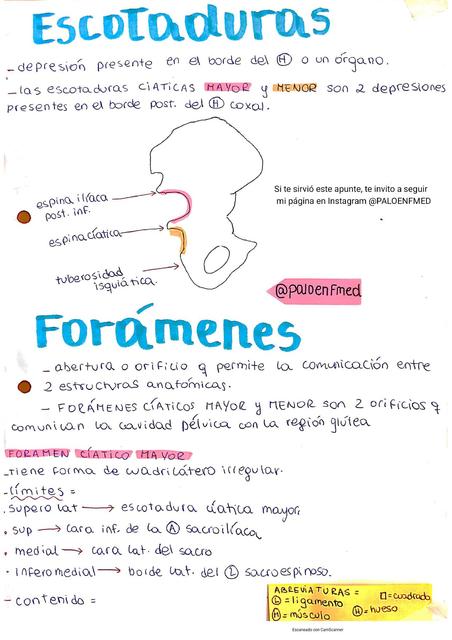 Escotaduras
- depresión presente en el borde del Ⓗ o un órgano.
- las escotaduras CíATICAS MAYOR y MENOR son 2 depresiones
presentes en el borde post. del Ⓗ coxal.
espina ilíaca
post. inf.
espina cíatica
tuberosidad
isquiática.
Si te sirvió este apunte, te invito a seguir
mi página en Instagram @PALOENFMED
@paloenfmed
Forámenes
- abertura o orificio q permite la comunicación entre
2 estructuras anatómicas.
- FORÁMENES CÍATICOS MAYOR y MENOR son 2 orificios q
comunican la cavidad pélvica con la región glútea
FORAMEN CÍATICO MAYOR
- tiene forma de cuadrilátero irregular.
- límites =
. supero lat → escotadura cíatica mayor,
. sup → cara inf. de la Ⓐ sacroilíaca
. medial → cara lat. del sacro
. Inferomedial → borde lat. del Ⓛ sacroespinoso.
- contenido =
ABREVIATURAS =
Ⓛ = ligamento □ = cuadrado
Ⓜ = músculo Ⓗ = hueso
Escaneado con CamScanner